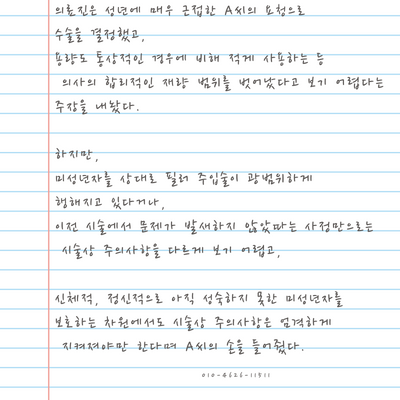 의료진은 성년에 매우 근접한 A씨의 요청으로
수술을 결정했고,
용량도 통상적인 경우에 비해 적게 사용하는 등
의사의 합리적인 재량 범위를 벗어났다고 보기 어렵다는
주장을 내놨다.
하지만,
미성년자를 상대로 필러 주입술이 광범위하게
행해지고 있다거나,
이전 시술에서 문제가 발생하지 않았다는 사정만으로는
시술상 주의사항을 다르게 보기 어렵고,
신체적, 정신적으로 아직 성숙하지 못한 미성년자를
보호하는 차원에서도 시술상 주의사항은 엄격하게
지켜져야만 한다며 A씨의 손을 들어줬다.